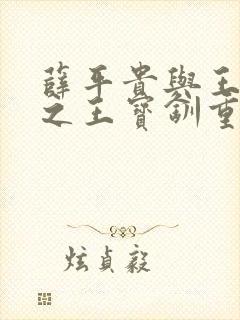 薛平貴與王
之王寶釧重
炫貞毅